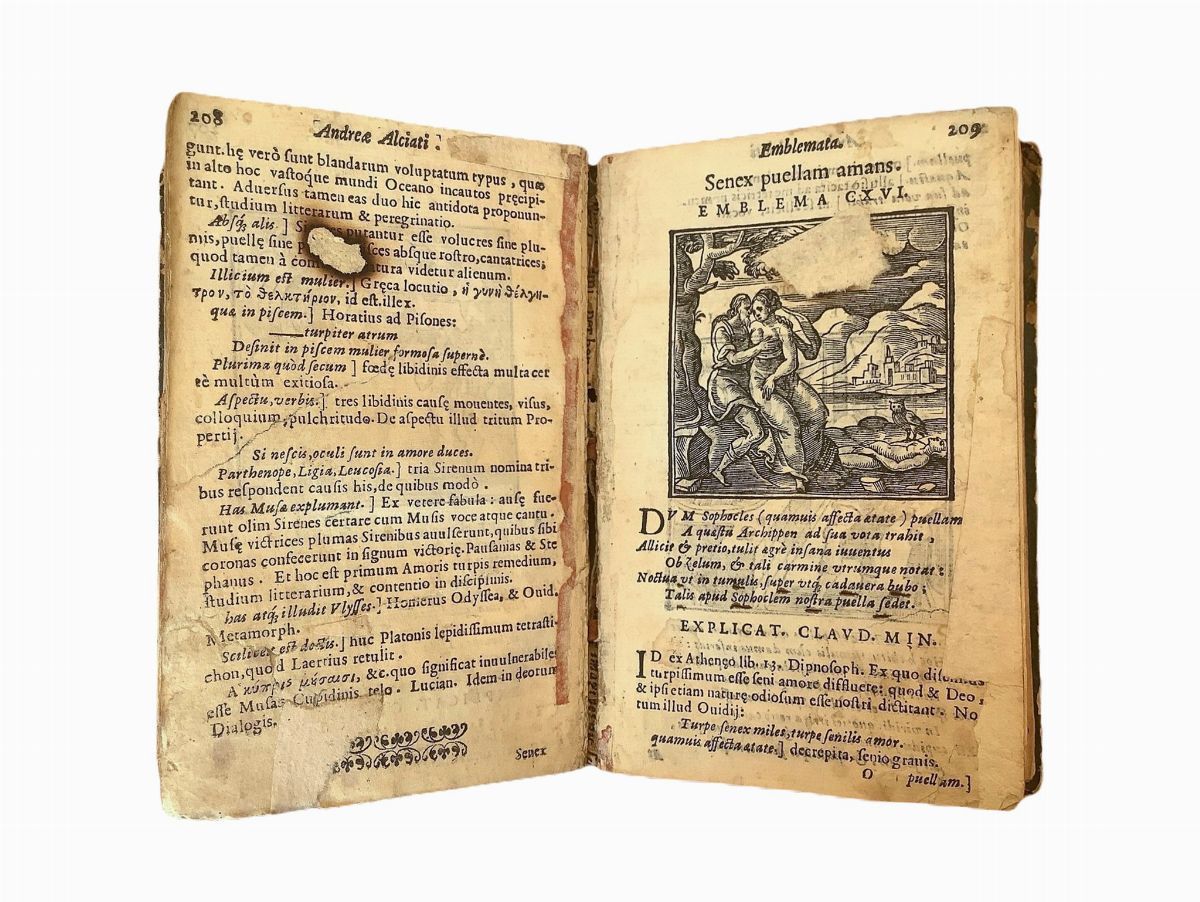 208
Andreæ Alciati.
gunt. hę verò sunt blandarum voluptatum typus, quæ
in alto hoc vastoque mundi Oceano incautos pręcipi-
tant. Aduersus tamen eas duo hic antidota proponun-
tur, studium litterarum & peregrinatio.
Absq́; alis.] putantur esse volucres sine plu-
mis, puellę sine absque rostro, cantatrices;
quod tamen à videtur alienum.
Illicium est mulier.] Gręca locutio, ἡ γυνὴ θέλγη-
τρον, τὸ θελκτήριον, id est. illex.
quæ in piscem.] Horatius ad Pisones:
——turpiter atrum
Desinit in piscem mulier formosa supernè.
Plurima quòd secum] fœdę libidinis effecta multa cer
tè multùm exitiosa.
Aspectu, verbis.] tres libidinis causę mouentes, visus,
colloquium, pulchritudo. De aspectu illud tritum Pro-
pertij.
Si nescis, oculi sunt in amore duces.
Parthenope, Ligia, Leucosia.] tria Sirenum nomina tri-
bus respondent causis his, de quibus modò.
Has Musæ explumant.] Ex vetere fabula: ausę fue-
runt olim Sirenes certare cum Musis voce atque cantu.
Musę victrices plumas Sirenibus auulserunt, quibus sibi
coronas confecerunt in signum victorię. Pausanias & Ste
phanus. Et hoc est primum Amoris turpis remedium,
studium litterarium, & contentio in disciplinis.
has atq́; illudit Vlysses.] Homerus Odyssea, & Ouid.
Metamorph.
Scilicet est doctis.] huc Platonis lepidissimum tetrasti-
chon, quod Laertius retulit.
Α κύπρις μύσαισι, &c. quo significat inuulnerabiles
esse Musas Cupidinis telo. Lucian. Idem in deorum
Dialogis.
Senex
209
Emblemata.
Senex puellam amans.
EMBLEMA CXVI.
DVM Sophocles (quamuis affecta ætate) puellam
A quæstu Archippen ad sua vota trahit,
Allicit & pretio, tulit ægrè insana iuuentus
Ob zelum, & tali carmine vtrumque notat:
Noctua vt in tumulis, super vtq́; cadauera bubo;
Talis apud Sophoclem nostra puella sedet.
EXPLICAT. CLAVD. MIN.
ID ex Athenęo lib. 13. Dipnosoph. Ex quo
turpissimum esse seni amore diffluere: quod & Deo,
& ipsi etiam naturę odiosum esse nostri dictitant. No
tum illud Ouidij:
Turpe senex miles, turpe senilis amor.
quamuis affecta ætate.] decrepita, senio grauis.
O
puellam.]